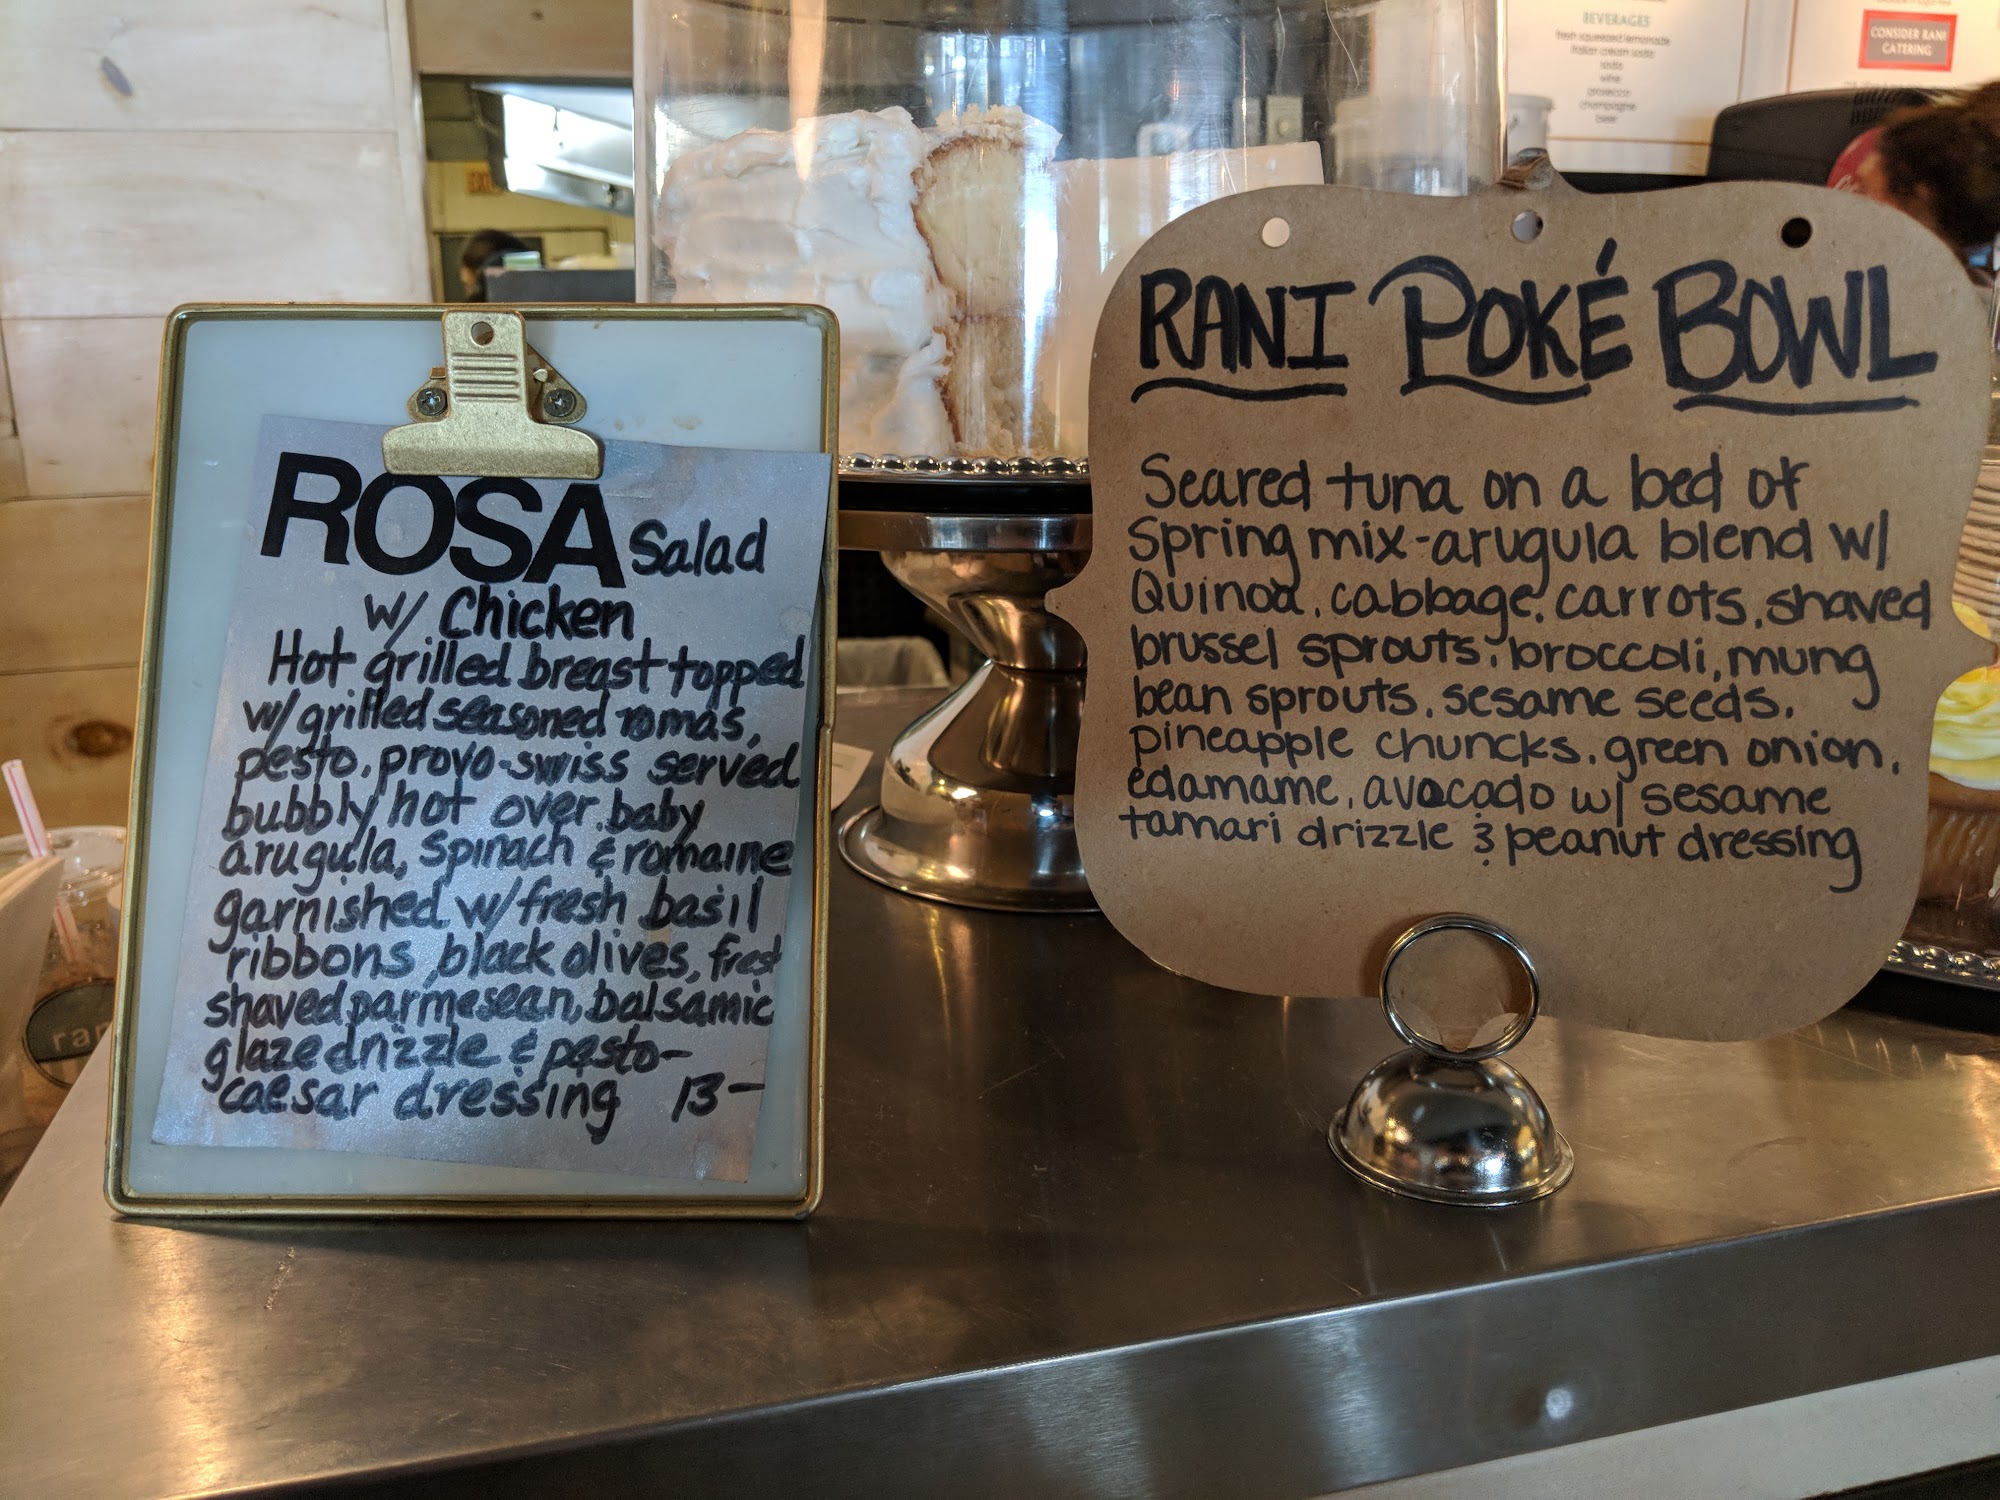 ROSA Salad
w/ Chicken
Hot grilled breast topped
w/grilled seasoned romas,
pesto, provo-swiss served
bubbly hot over baby
arugula, spinach & romaine
garnished w/fresh basil
ribbons, black olives, fresh
shaved parmesean, balsamic
glaze drizzle & pesto-
caesar dressing 13-
RANI POKÉ BOWL
Seared tuna on a bed of
Spring mix-arugula blend w/
Quinoa, cabbage, carrots, shaved
brussel sprouts, broccoli, mung
bean sprouts, sesame seeds,
pineapple chuncks, green onion,
edamame, avocado w/ sesame
tamari drizzle & peanut dressing
BEVERAGES
fresh squeezed lemonade
italian cream soda
soda
wine
prosecco
champagne
beer
CONSIDER RANI
CATERING